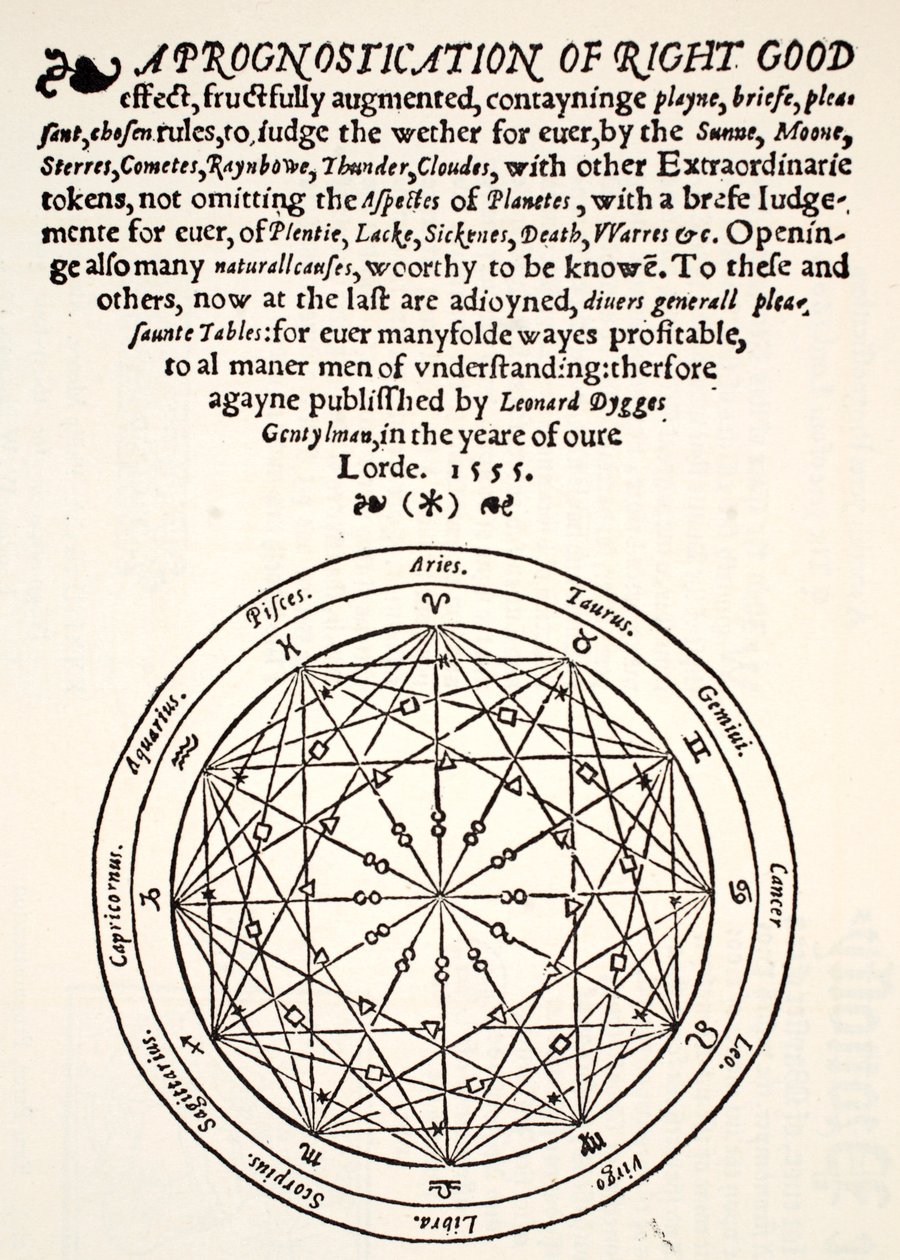 A PROGNOSTICATION OF RIGHT GOOD
effect, fructfully augmented, contayninge playne, briefe, plea-
ſant, choſen rules, to Iudge the wether for euer, by the Sunne, Moone,
Sterres, Cometes, Raynbowe, Thunder, Cloudes, with other Extraordinarie
tokens, not omitting the Aſpectes of Planetes, with a brefe Iudge-
mente for euer, of Plentie, Lacke, Sickenes, Death, VVarres &c. Openin-
ge alſo many naturall cauſes, woorthy to be knowẽ. To theſe and
others, now at the laſt are adioyned, diuers generall plea,
ſaunte Tables: for euer manyfolde wayes profitable,
to al maner men of vnderſtanding: therfore
agayne publiſſhed by Leonard Dygges
Gentylman, in the yeare of oure
Lorde. 1555.
(*)
Aries.
♈
Taurus.
♉
Gemini.
♊
Cancer
♋
Leo.
♌
Virgo
♍
Libra.
♎
Scorpius.
♏
Sagittarius.
♐
Capricornus.
♑
Aquarius.
♒
Piſces.
♓